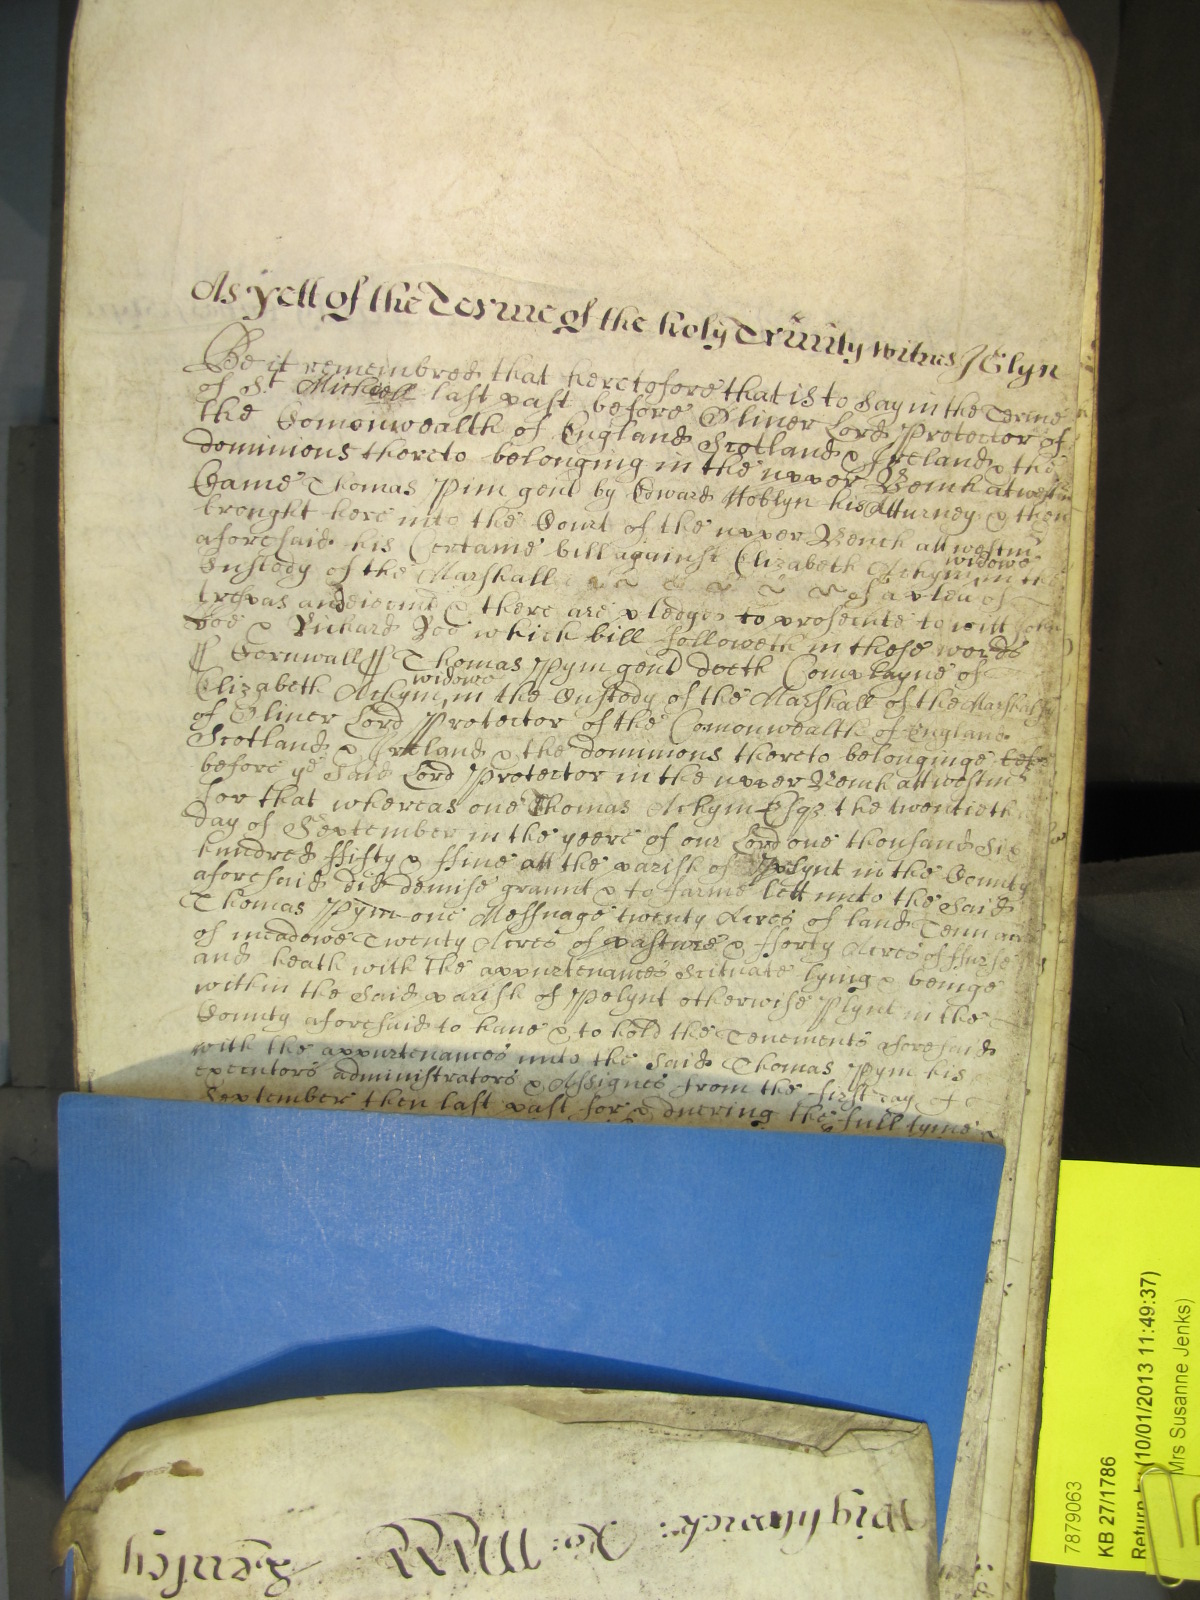 As yett of the Terme of the holy Trinity witnes J Glyn
Be it remembred that heretofore that is to Say in the Terme
of St Michaell last past before Oliuer Lord Protector of
the Comonwealth of England Scotland & Ireland & the
dominions thereto belonging in the upper Bench at westmr
Came Thomas Pim gent by Edward Hoblyn his Atturney & then
brought here into the Court of the upper Bench att westmr
aforesaid his Certaine bill against Elizabeth Achym widowe in the
Custody of the Marshall of a plea of
trespas and eiectmt & there are pledges to prosecute to witt John
Doe & Richard Roe which bill followeth in these words
ss Cornwall ss Thomas Pym gent doeth Complayne of
Elizabeth Achym widowe in the Custody of the Marshall of the Marshalsy
of Oliuer Lord Protector of the Comonwealth of England
Scotland & Ireland & the dominions thereto belonginge
before ye Said Lord Protector in the upper Bench att westmr
for that whereas one Thomas Achym Esqr the twentieth
day of September in the yeere of our Lord one thousand Six
hundred ffifty & ffiue att the parish of Pelynt in the County
aforesaid did demise graunt & to farme lett unto the Said
Thomas Pym one Messuage twenty Acres of land Tenn acres
of meadowe Twenty Acres of pasture & fforty Acres of ffurse
and heath with the appurtenances Scituate lying & beinge
within the Said parish of Pelynt otherwise Plynt in the
County aforesaid to haue & to hold the Tenements aforesaid
with the appurtenances unto the Said Thomas Pym his
executors administrators & Assignes from the first day of
September then last past for & duering the full tyme
7879063
KB 27/1786
Return by (10/01/2013 11:49:37)
Mrs Susanne Jenks)